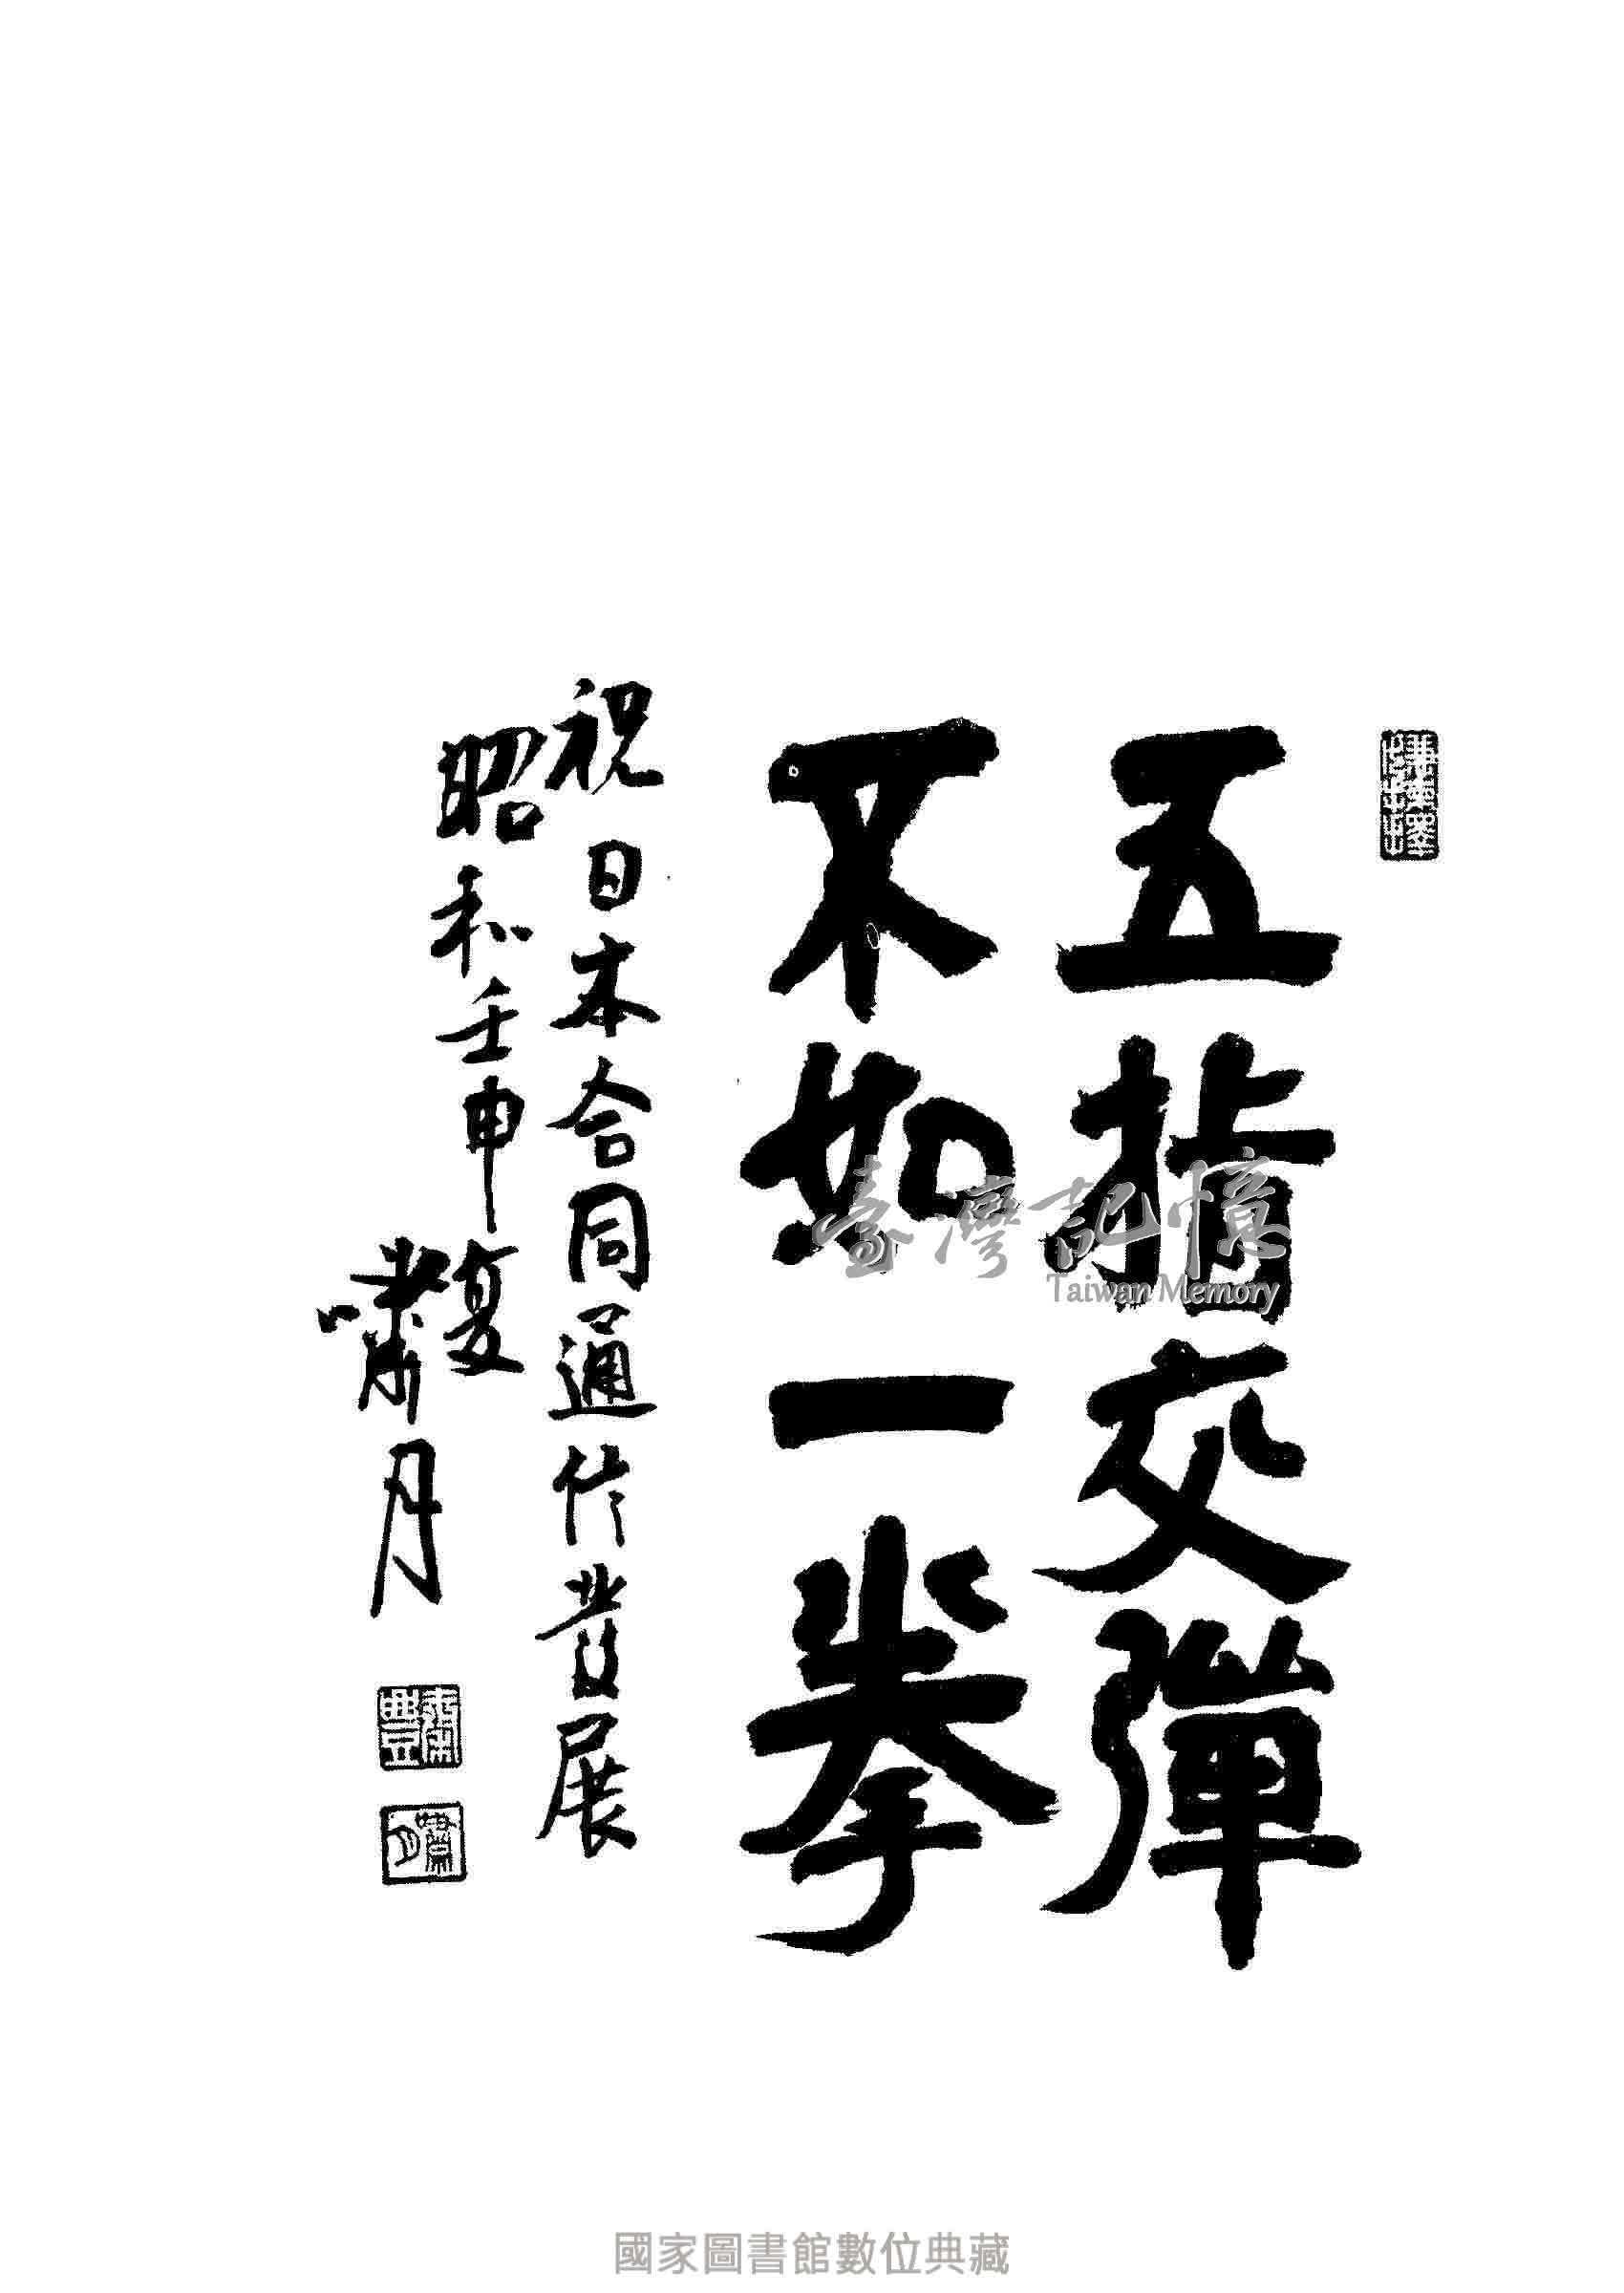 五指交彈
不如一拳
祝日本合同通信發展
昭和壬申夏
嘯月
臺灣記憶
Taiwan Memory
國家圖書館數位典藏